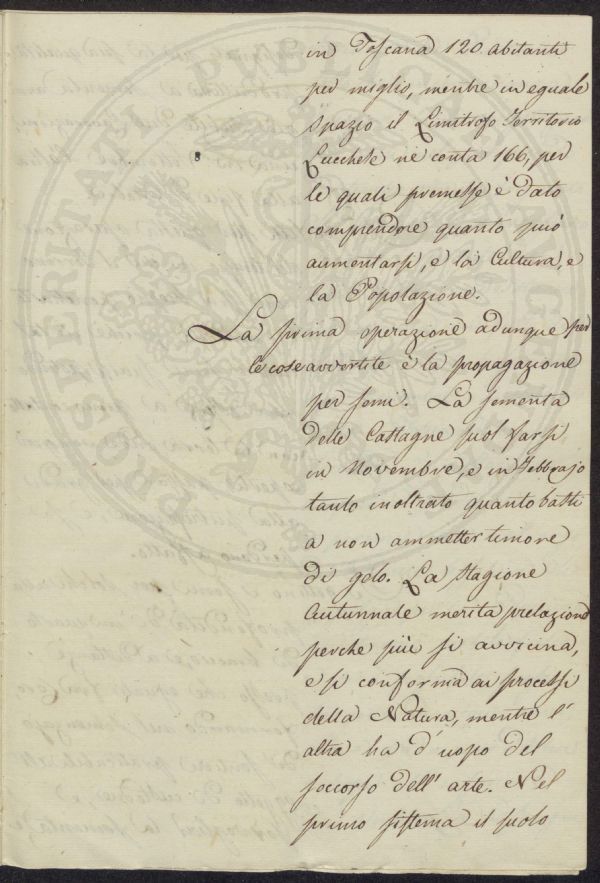 in Toscana 120 abitanti
per miglio, mentre in eguale
spazio il Limitrofo Territorio
Lucchese ne conta 166, per
le quali premesse è dato
comprendere quanto può
aumentarsi, e la Cultura, e
la Popolazione.
La prima operazione adunque per
le cose avvertite è la propagazione
per semi. La sementa
delle Castagne suol farsi
in Novembre, e in Febbrajo
tanto inoltrato quanto basti
a non ammetter timore
di gelo. La stagione
Autunnale merita prelazione
perche più si avvicina,
e si conforma ai processi
della Natura, mentre l'
altra ha d'uopo del
soccorso dell'arte. Nel
primo sistema il suolo